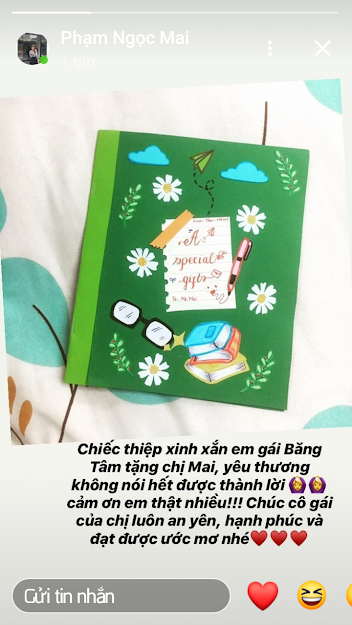 Phạm Ngọc Mai
1 giờ
A
special
gifts
To: Ms. Mai
Chiếc thiệp xinh xắn em gái Băng
Tâm tặng chị Mai, yêu thương
không nói hết được thành lời 🙆‍♀️🙆‍♀️
cảm ơn em thật nhiều!!! Chúc cô gái
của chị luôn an yên, hạnh phúc và
đạt được ước mơ nhé❤️❤️❤️
Gửi tin nhắn